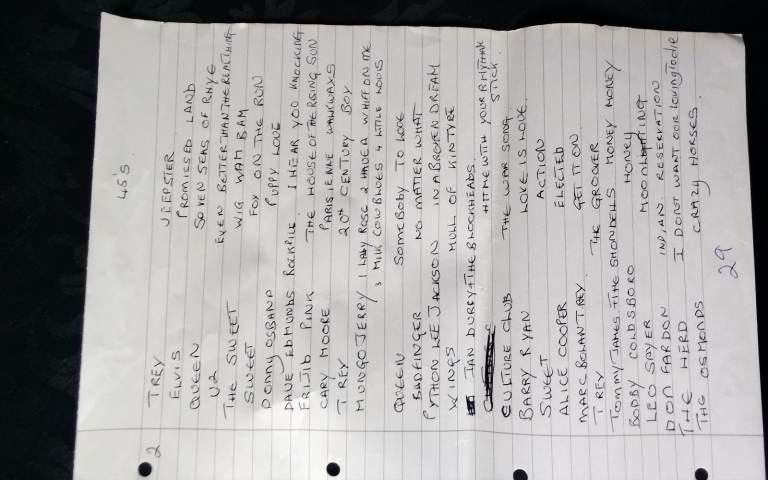 45'S
2 TREY JEEPSTER
ELVIS PROMISSED LAND
QUEEN SEVEN SEAS OF RHYE
U2 EVEN BETTER THAN THE REAL THING
THE SWEET WIG WAM BAM
SWEET FOX ON THE RUN
DONNY OSBAND PUPPY LOVE
DAVE EDMUNDS ROCKPILE. I HEAR YOU KNOCKING
FRIJID PINK THE HOUSE OF THE RISING SUN
GARY MOORE PARISIENNE WALKWAYS
TREY 20TH CENTURY BOY
MUNGO JERRY 1 LADY ROSE 2 HAVE A WHIFF ON ME
3 MILK COW BLUES 4 LITTLE LOUIS
QUEEN SOMEBODY TO LOVE
BADFINGER NO MATTER WHAT
PYTHON LEE JACKSON IN A BROKEN DREAM
WINGS MULL OF KINTYRE
IAN DURRY + THE BLOCKHEADS. HIT ME WITH YOUR RHYTHM
STICK.
CULTURE CLUB THE WAR SONG
BARRY RYAN LOVE IS LOVE
SWEET ACTION
ALICE COOPER ELECTED
MARC BOLAN TREY. GET IT ON
TREY THE GROOVER
TOMMY JAMES + THE SHONDELLS MONEY MONEY
BOBBY GOLDSBORO HONEY
LEO SAYER MOONLIGHTING
DON FARDON INDIAN RESERVATION
THE HERD I DONT WANT OUR LOVING TO DIE
THE OSMONDS CRAZY HORSES.
29